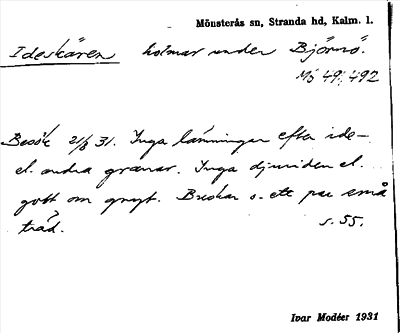 Mönsterås sn, Stranda hd, Kalm. l.
Ideskären holmar under Björnö.
Mö 49; 492
Besök 21/8 31. Inga lämningar efter ide-
el. andra granar. Inga djuriden el.
gott om gnyt. Buskar o. ett par små
träd.
s. 55.
Ivar Modéer 1931